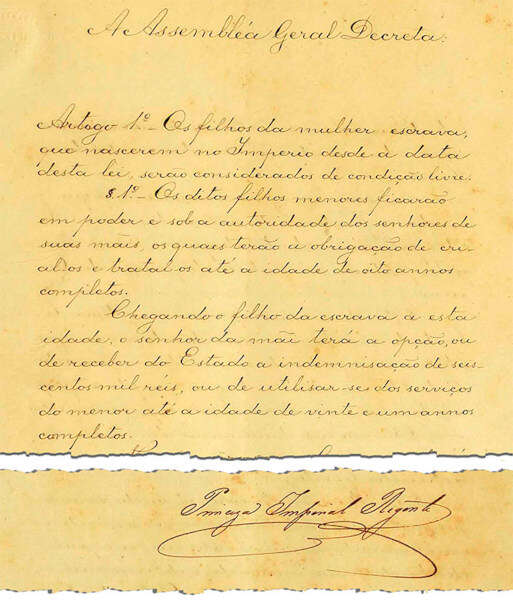 A Assembléa Geral Decreta:
Artogo 1.º – Os filhos da mulher escrava,
que nascerem no Imperio desde a data
desta lei, serão considerados de condição livre.
§.1.º – Os ditos filhos menores ficarão
em poder e sob a autoridade dos senhores de
suas mãis, os quaes terão a obrigação de cri-
al-os e tratal-os até a idade de oito annos
completos.
Chegando o filho da escrava a esta
idade, o senhor da mãi terá a opção, ou
de receber do Estado a indemnisação de seis-
centos mil réis, ou de utilisar-se dos serviços
do menor até a idade de vinte e um annos
completos.
Princeza Imperial Regente